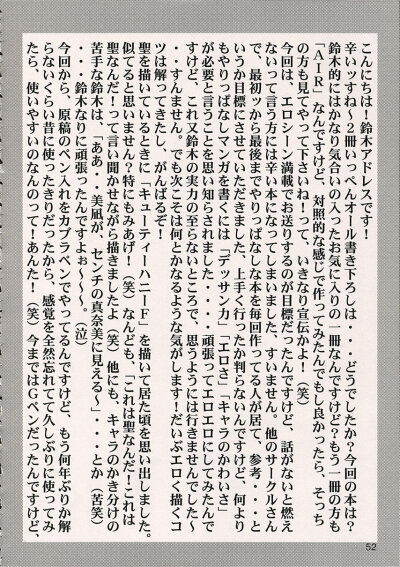 こんにちは！鈴木アドレスです！
辛いッすね～２冊いっぺんオール書き下ろしは・・・どうでしたか？今回の本は？
鈴木的にはかなり気合いの入ったお気に入りの一冊なんですけど？もう一冊の方も
「ＡＩＲ」なんですけど、対照的な感じで作ってみたんでもし良かったら、そっち
の方も見てやって下さいね！って、いきなり宣伝かよ！（笑）
今回は、エロシーン満載でお送りするのが目標だったんですけど、話がないと燃え
ないって言う方には辛い本になってしまいました、すいません。他のサークルさん
で、最初ッから最後までやりっぱなしな本を毎回作ってる人が居て、参考・・・と
いうか目標にさせていただきました。上手く行ったか判らないんですけど、何より
もやりっぱなしマンガを書くには「デッサン力」「エロさ」「キャラのかわいさ」
が必要と言うことを思い知らされました・・・。頑張ってエロエロにしてみたんで
すけど、これ又鈴木の実力の至らないところで、思うようには行きませんでした～
・・すんません。でも次こそは何とかなるような気がします！だいぶエロく描くコ
ツは解ってきたし、がんばるぞ！
聖を描いているときに「キューティーハニーＦ」を描いて居た頃を思い出しました。
似てると思いません？特にもみあげ！（笑）なんども、「これは聖なんだ！これは
聖なんだ！って言い聞かせながら描きましたよ（笑）他にも、キャラのかき分けの
苦手な鈴木は、「ああ・・美凪が、センチの真奈美に見える～」・・とか（苦笑）
・・・鈴木なりに頑張ったんですよぉ～～。（泣）
今回から、原稿のペン入れをカブラペンでやってるんですけど、もう何年ぶりか解
らないくらい昔に使ったきりだったから、感覚を全然忘れてて久しぶりに使ってみ
たら、使いやすいのなんのって！あんた！（笑）今まではＧペンだったんですけど、
52